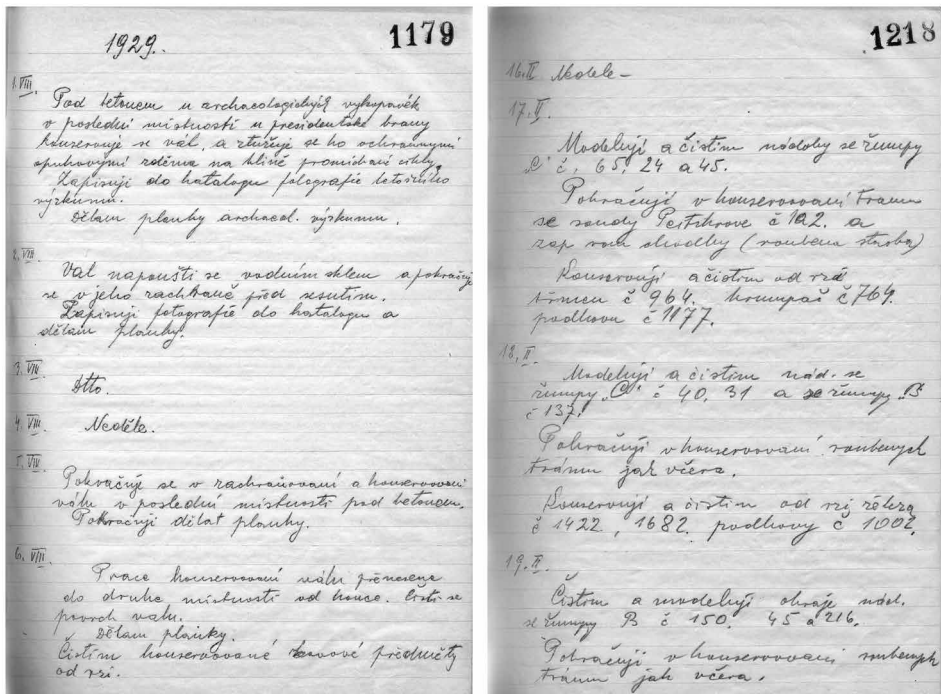 1929.
1179
1.VIII.
Pod betonem u archaeologických vykopávek
v poslední místnosti u presidentské brany
konservuje se vál, a ztužuje se ho ochrannými
opukovými zděma na hlíně promíchané cihly.
Zapisuji do katalogu fotografie letošního
výzkumu.
Dělám planky archaeol. výzkumu.
2. VIII.
Val napouští se vodním sklem a pokračuje
se v jeho zachraně před sesutim.
Zapisuji fotografie do katalogu a
dělám planky.
3. VIII.
Dtto.
4. VIII. Neděle.
5. VIII
Pokračuje se v zachraňování a konservovaní
válu v poslední místnosti pod betonem.
Pokračuji dělat planky.
6. VIII.
Prace konservovaní válu přenesena
do druhe místnosti od konce. Čistí se
povrch valu.
Dělam planky.
Čistím konservované kovové předměty
od rzi.
1218
16.II Neděle-
17.II.
Modeluji a čistim nádoby se žumpy
č. 65, 24 a 45.
Pokračuji v konservovaní tramu
se sondy č 102. a
zap chodby (roubena stavba)
Konservuji a čistim od rzi
třmen č 964. krumpač č 769.
podkovu č 1177.
18. II.
Modeluji a čistim nád. se
žumpy "C" č 40, 31 a se žumpy "B"
č 137.
Pokračuji v konservovaní roubenych
trámu jak včera.
Konservuji a čistim od rzi železa
č 1422, 1682, podkovy č 1002.
19. II.
Čistim a modeluji okraje nád.
se žumpy B č 150, 45 a 216.
Pokračuji v konservovani roubenych
trámu jak včera.